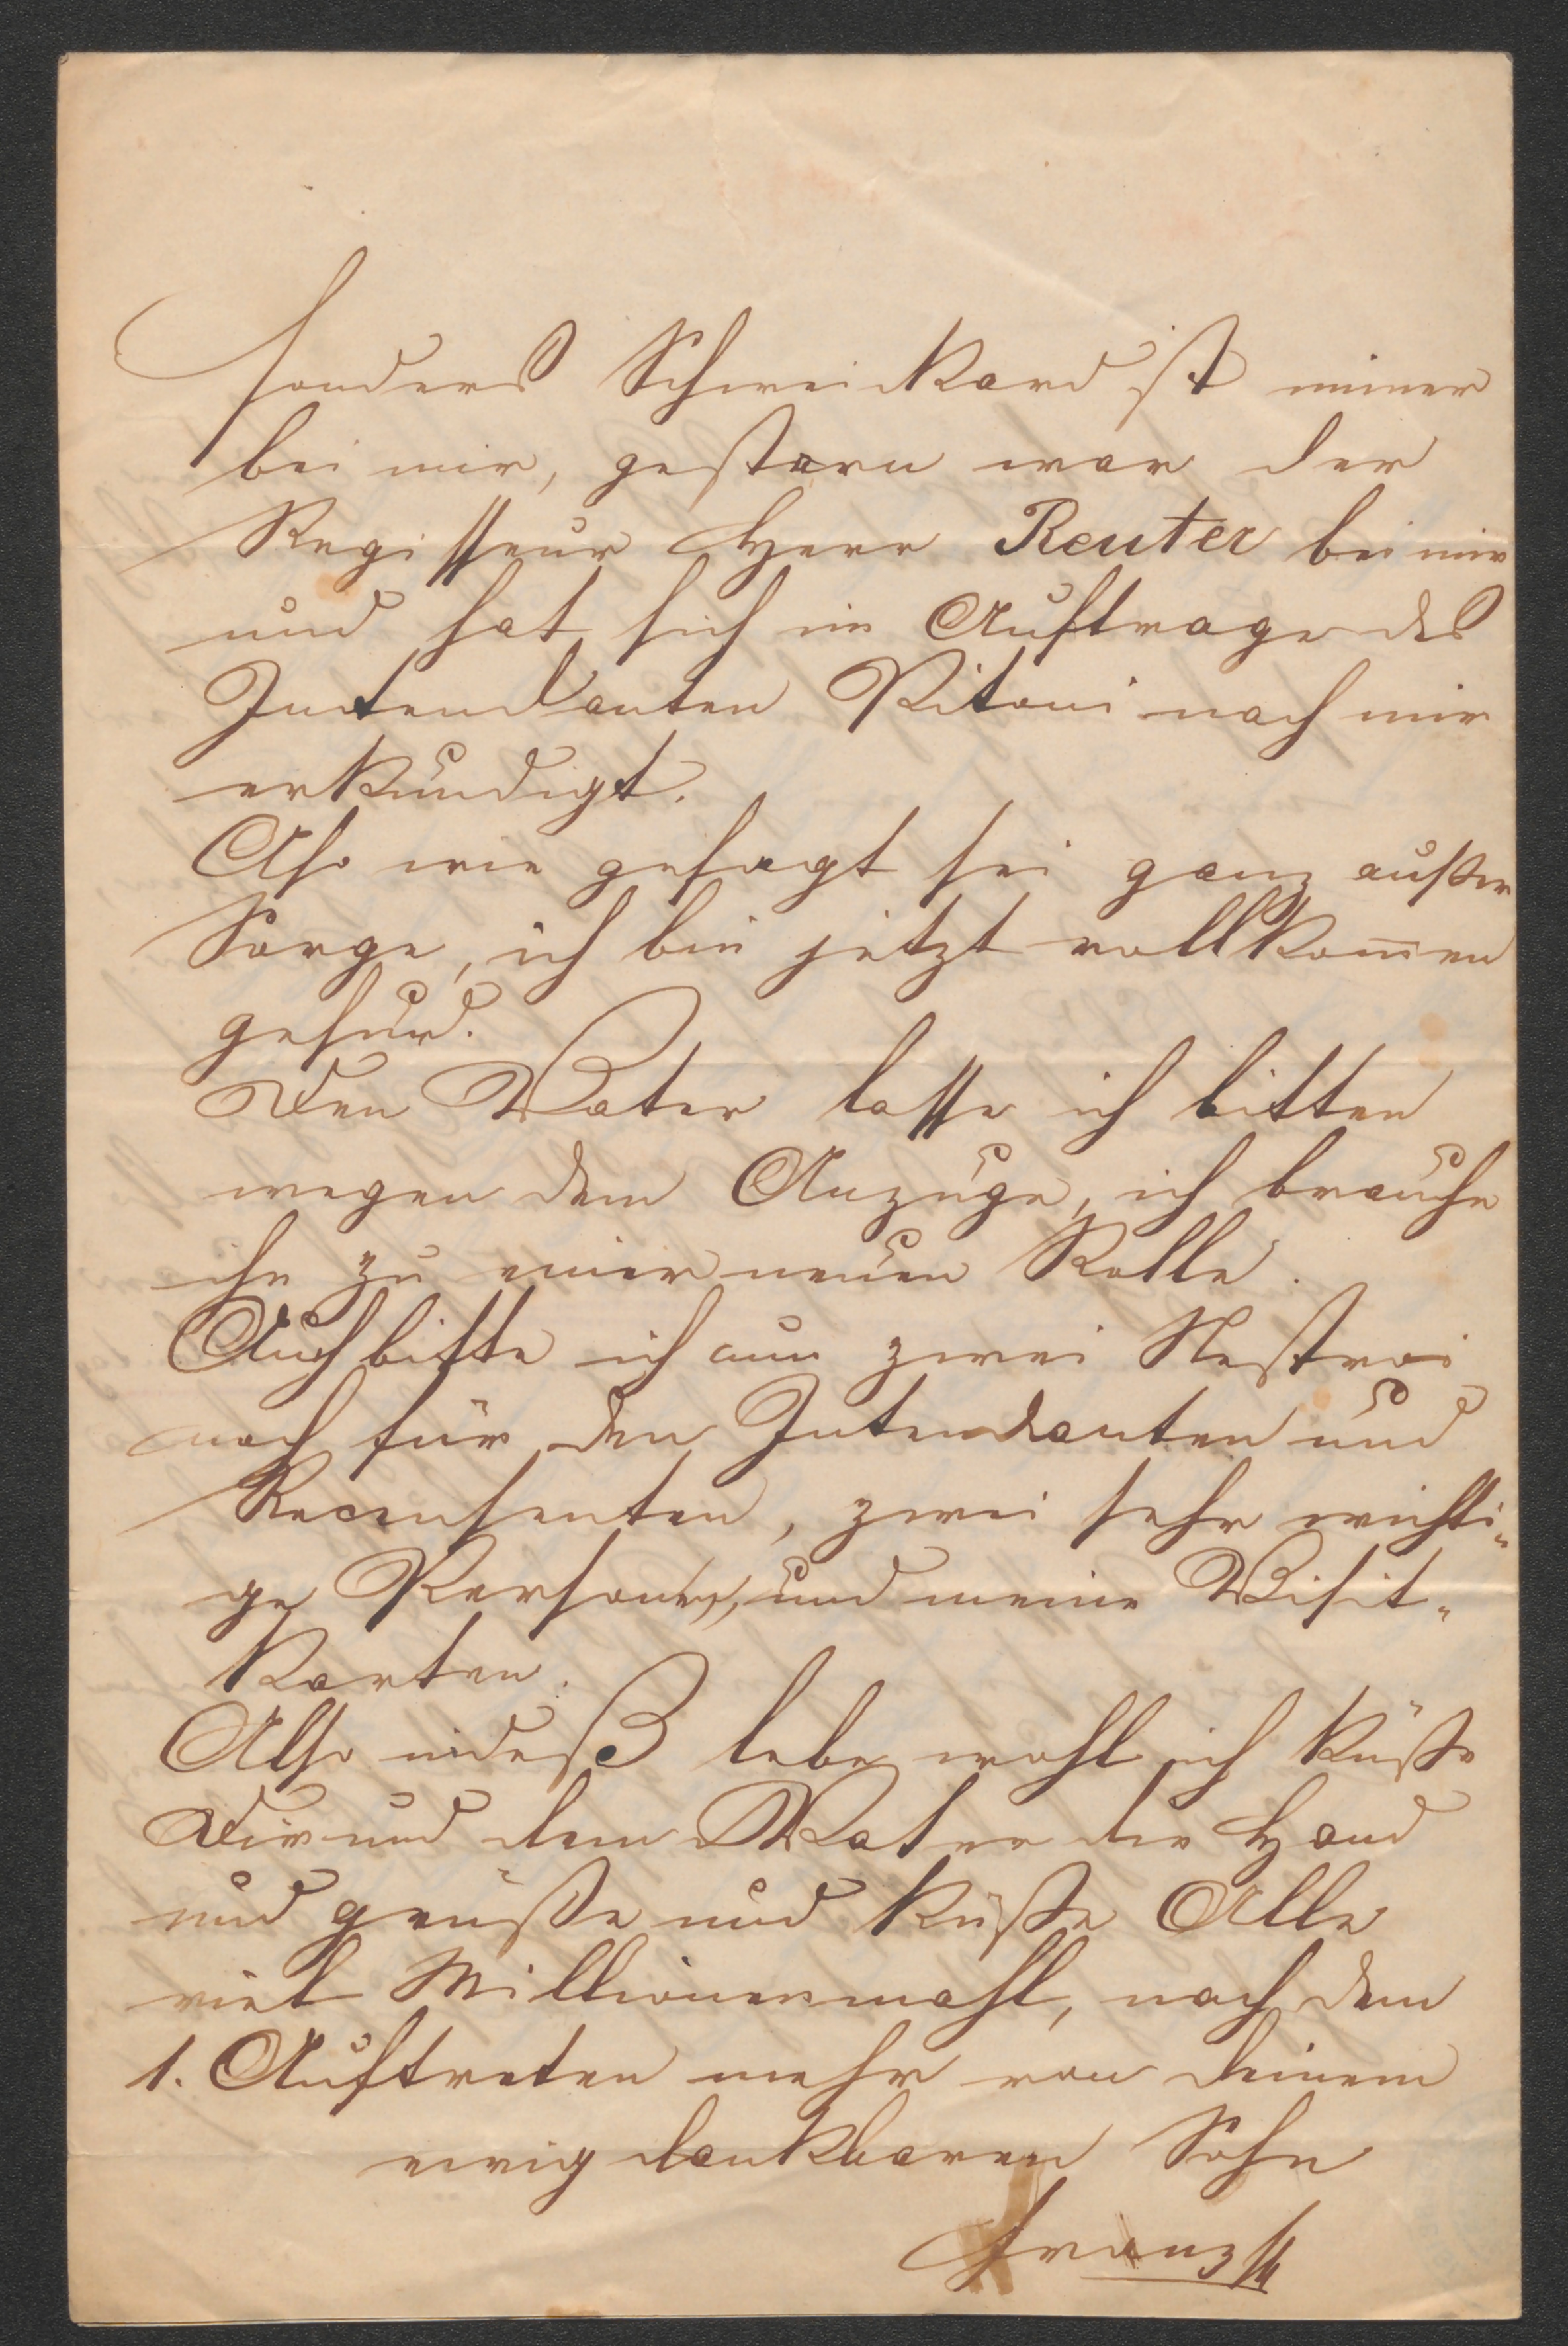 sonders Schweikard ist immer
bei mir, gestern war der
Regisseur Herr Reuter bei mir
und hat sich im Auftrage des
Intendanten Witoni nach mir
erkundigt.
Also wie gesagt sei ganz außer
Sorge, ich bin jetzt vollkom̅en
gesund.
Den Vater lasse ich bitten
wegen dem Anzuge, ich brauche
ihn zu einer neuen Rolle.
Auch bitte ich um zwei Nestroi
noch für den Intendanten und
Recensenten, zwei sehr wichti-
ge Personen, und meine Visit-
karten.
Also indeß lebe wohl ich küße
Dir und dem Vater die Hand
und grüße und küße Alle
viel Millionenmahl, nach dem
1. Auftreten mehr von deinem
ewig dankbaren Sohn
Franz